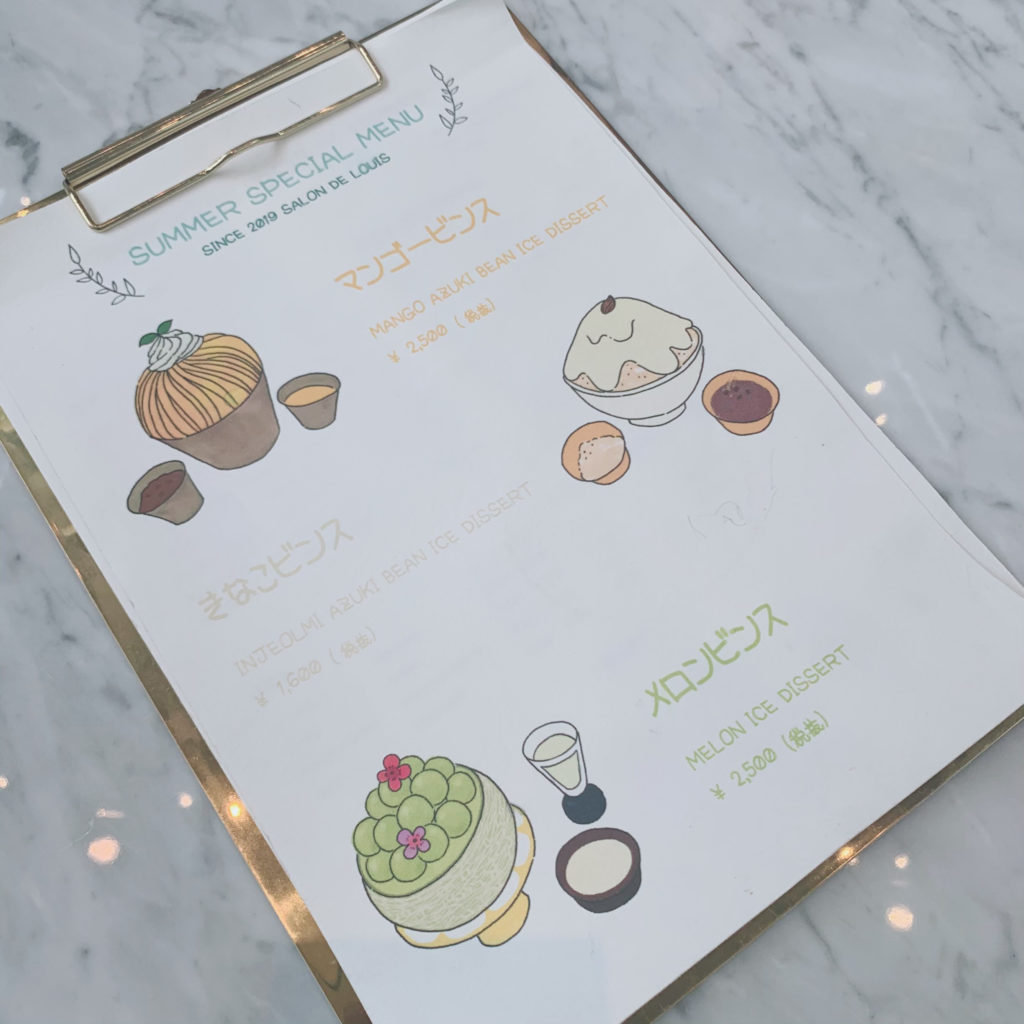 SUMMER SPECIAL MENU
SINCE 2019 SALON DE LOUIS
マンゴービンス
MANGO AZUKI BEAN ICE DISSERT
¥ 2,500 (税抜)
きなこビンス
INJEOLMI AZUKI BEAN ICE DISSERT
¥ 1,600 (税抜)
メロンビンス
MELON ICE DISSERT
¥ 2,500 (税抜)